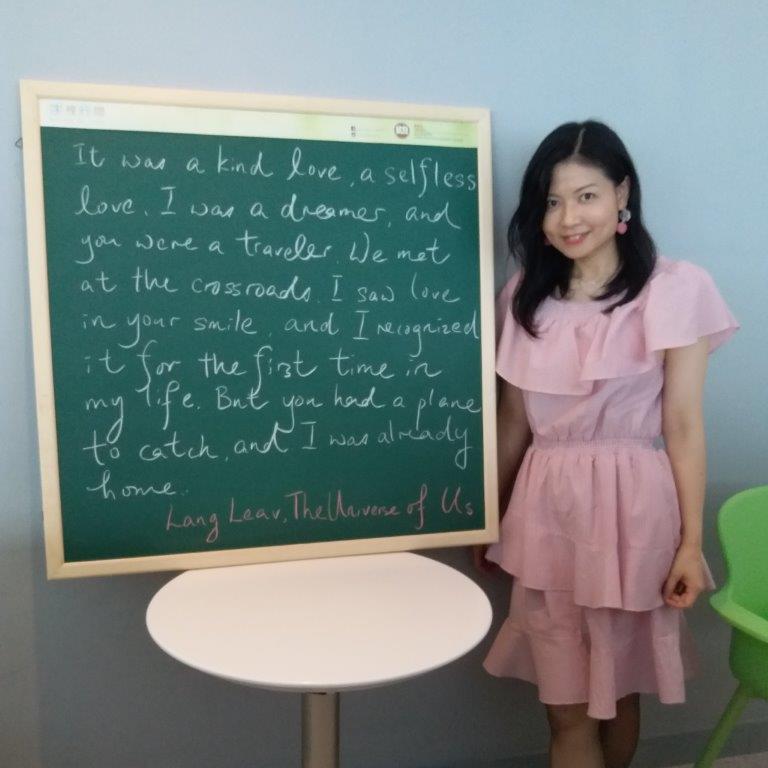 It was a kind love, a selfless
love. I was a dreamer, and
you were a traveler. We met
at the crossroads. I saw love
in your smile, and I recognized
it for the first time in
my life. But you had a plane
to catch, and I was already
home.
Lang Leav, The Universe of Us